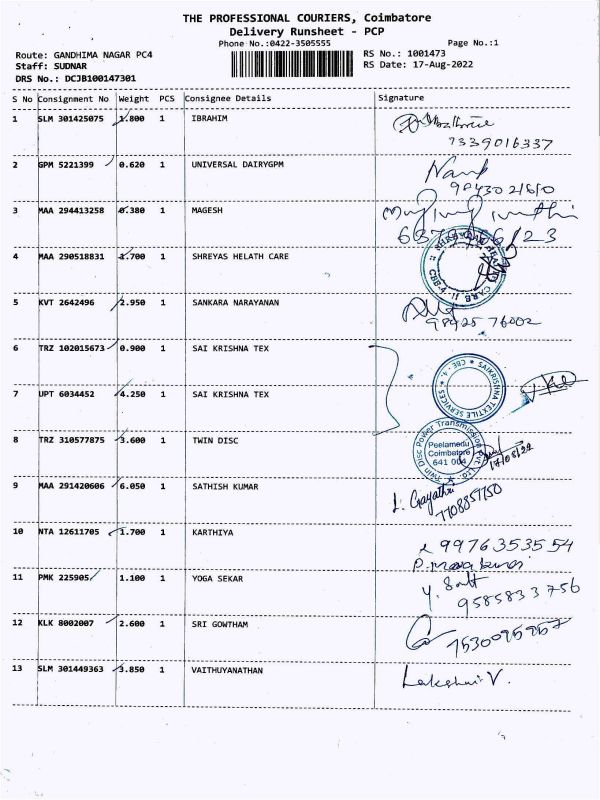 THE PROFESSIONAL COURIERS, Coimbatore
Delivery Runsheet - PCP
Phone No.:0422-3505555
Page No.:1
Route: GANDHIMA NAGAR PC4
RS No.: 1001473
Staff: SUDNAR
RS Date: 17-Aug-2022
DRS No.: DCJB100147301
S No Consignment No Weight PCS Consignee Details Signature
1 SLM 301425075 1.800 1 IBRAHIM
7339016337
2 GPM 5221399 0.620 1 UNIVERSAL DAIRYGPM
3 MAA 294413258 0.380 1 MAGESH
4 MAA 290518831 1.700 1 SHREYAS HELATH CARE
CBB-4
5 KVT 2642496 2.950 1 SANKARA NARAYANAN
98425 76002
6 TRZ 102015673 0.900 1 SAI KRISHNA TEX
SAIKRISHNA TEXTILE SERVICES ★ CBE - 4. ★
7 UPT 6034452 4.250 1 SAI KRISHNA TEX
8 TRZ 310577875 3.600 1 TWIN DISC
Twin Disc Power Transmission Pvt. Ltd.
Peelamedu
Coimbatore
641 004
17/08/22
9 MAA 291420606 6.050 1 SATHISH KUMAR
L. Gayathri
7708857750
10 NTA 12611705 1.700 1 KARTHIYA
9976353554
11 PMK 225905 1.100 1 YOGA SEKAR
9585833756
12 KLK 8002007 2.600 1 SRI GOWTHAM
13 SLM 301449363 3.850 1 VAITHUYANATHAN
Lakshmi V.